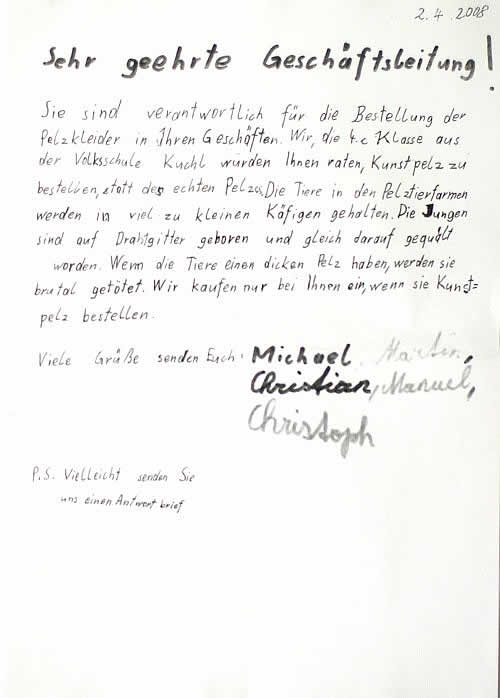 2.4.2008
Sehr geehrte Geschäftsleitung!
Sie sind verantwortlich für die Bestellung der
Pelzkleider in Ihren Geschäften. Wir, die 4.c Klasse aus
der Volksschule Kuchl würden Ihnen raten, Kunstpelz zu
bestellen, statt des echten Pelzes. Die Tiere in den Pelztierfarmen
werden in viel zu kleinen Käfigen gehalten. Die Jungen
sind auf Drahtgitter geboren und gleich darauf gequält
worden. Wenn die Tiere einen dicken Pelz haben, werden sie
brutal getötet. Wir kaufen nur bei Ihnen ein, wenn sie Kunst=
pelz bestellen.
Viele Grüße senden Euch: Michael, Martin,
Christian, Manuel,
Christoph
P.S. Vielleicht senden Sie
uns einen Antwortbrief